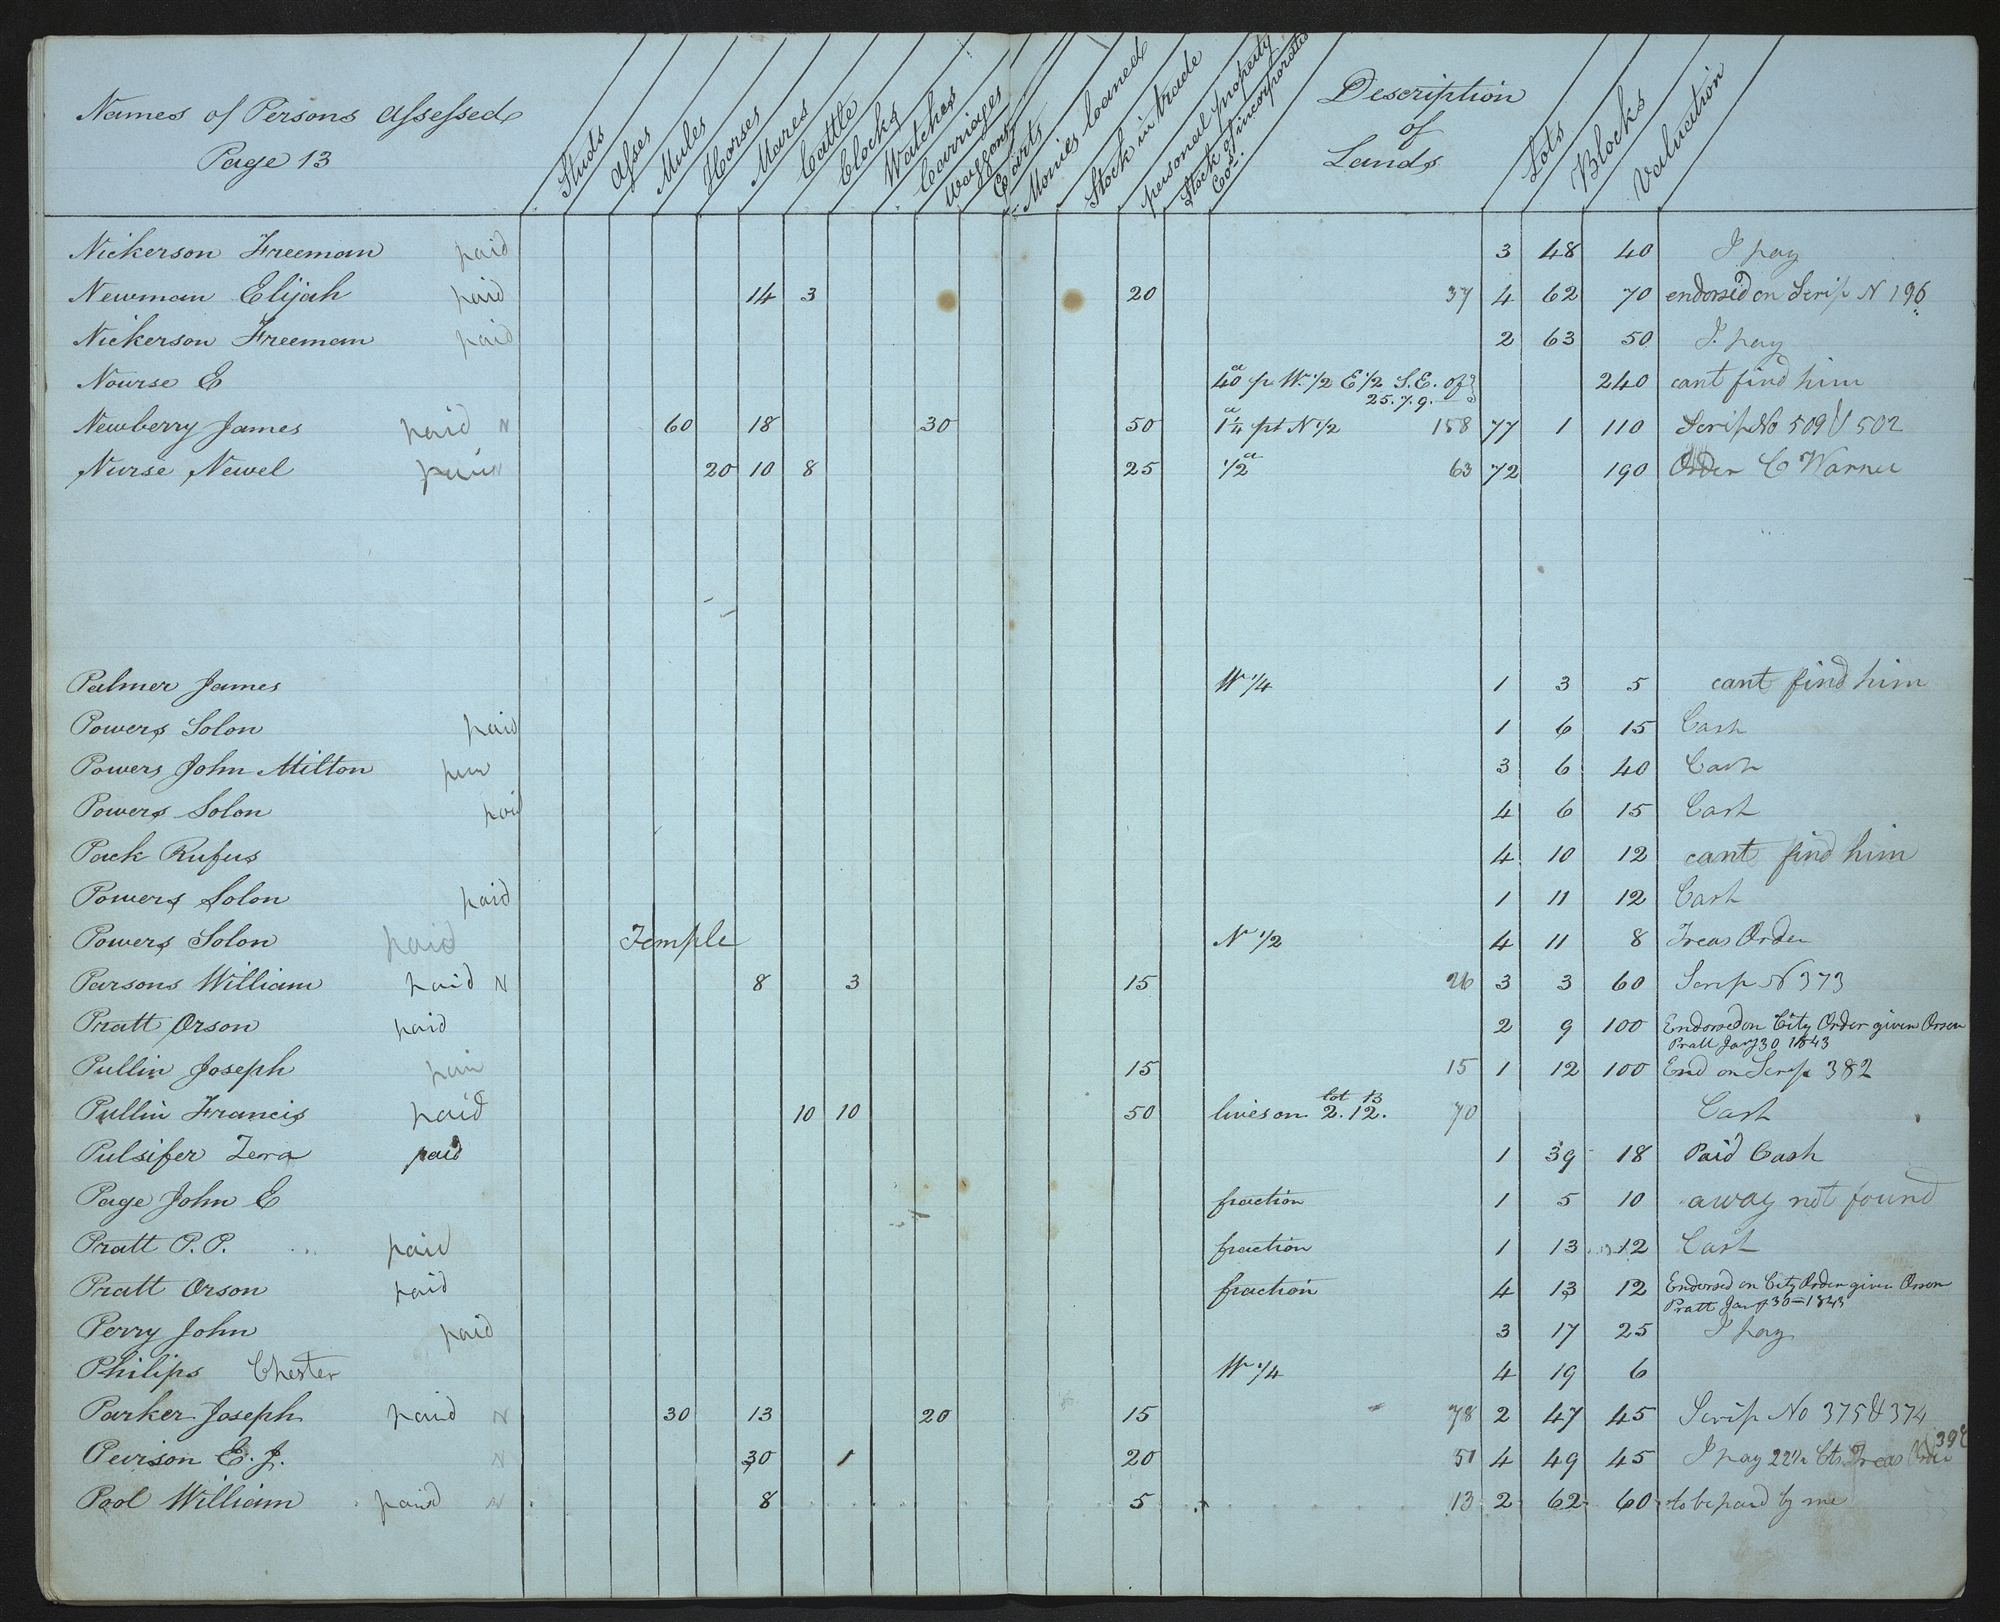 Names of Persons assessed
Page 13
Studs
Asses
Mules
Horses
Mares
Cattle
Clocks
Watches
Carriages
Waggons
Carts
Monies loaned
Stock in trade
personal property
Stock of incorporated
Cos.
Description
of
Lands
Lots
Blocks
Valuation
Nickerson Freeman paid 3 48 40 I pay
Newman Elijah paid 14 3 20 37 4 62 70 endorsed on Scrip N 196
Nickerson Freeman paid 2 63 50 I pay
Nourse E 40 a p W 1/2 E 1/2 S.E. of 240 cant find him
25. 7. 9.
Newberry James paid N 60 18 30 50 1 1/4 a pt N 1/2 158 77 1 110 Scrip No 509 & 502
Nurse Newel paid N 20 10 8 25 1/2 a 63 72 190 Order C Warner
Palmer James W 1/4 1 3 5 cant find him
Powers Solon paid 1 6 15 Cash
Powers John Milton 3 6 40 Cash
Powers Solon paid 4 6 15 Cash
Pack Rufus 4 10 12 cant find him
Powers Solon paid 1 11 12 Cash
Powers Solon paid Temple N 1/2 4 11 8 Treas Order
Parsons William paid N 8 3 15 26 3 3 60 Scrip N 373
Pratt Orson paid 2 9 100 Endorsed on City Order given Orson
Pratt Jany 30 1843
Pullin Joseph paid 15 15 1 12 100 End on Scrip 382
Pullin Francis paid 10 10 50 lives on lot 2. b 12. 70 Cash
Pulsifer Zera paid 1 39 18 Paid Cash
Page John E fraction 1 5 10 away not found
Pratt P. P. paid fraction 1 13 12 Cash
Pratt Orson paid fraction 4 13 12 Endorsed on City Order given Orson
Pratt Jany 30 - 1843
Perry John paid 3 17 25 I pay
Philips Chester W 1/4 4 19 6
Parker Joseph paid N 30 13 20 15 78 2 47 45 Scrip No 375 & 374
Peirson E. J. N 30 1 20 51 4 49 45 I pay 22 1/2 Cts Treas Order
Pool William paid N 8 5 13 2 62 60 to be paid by me